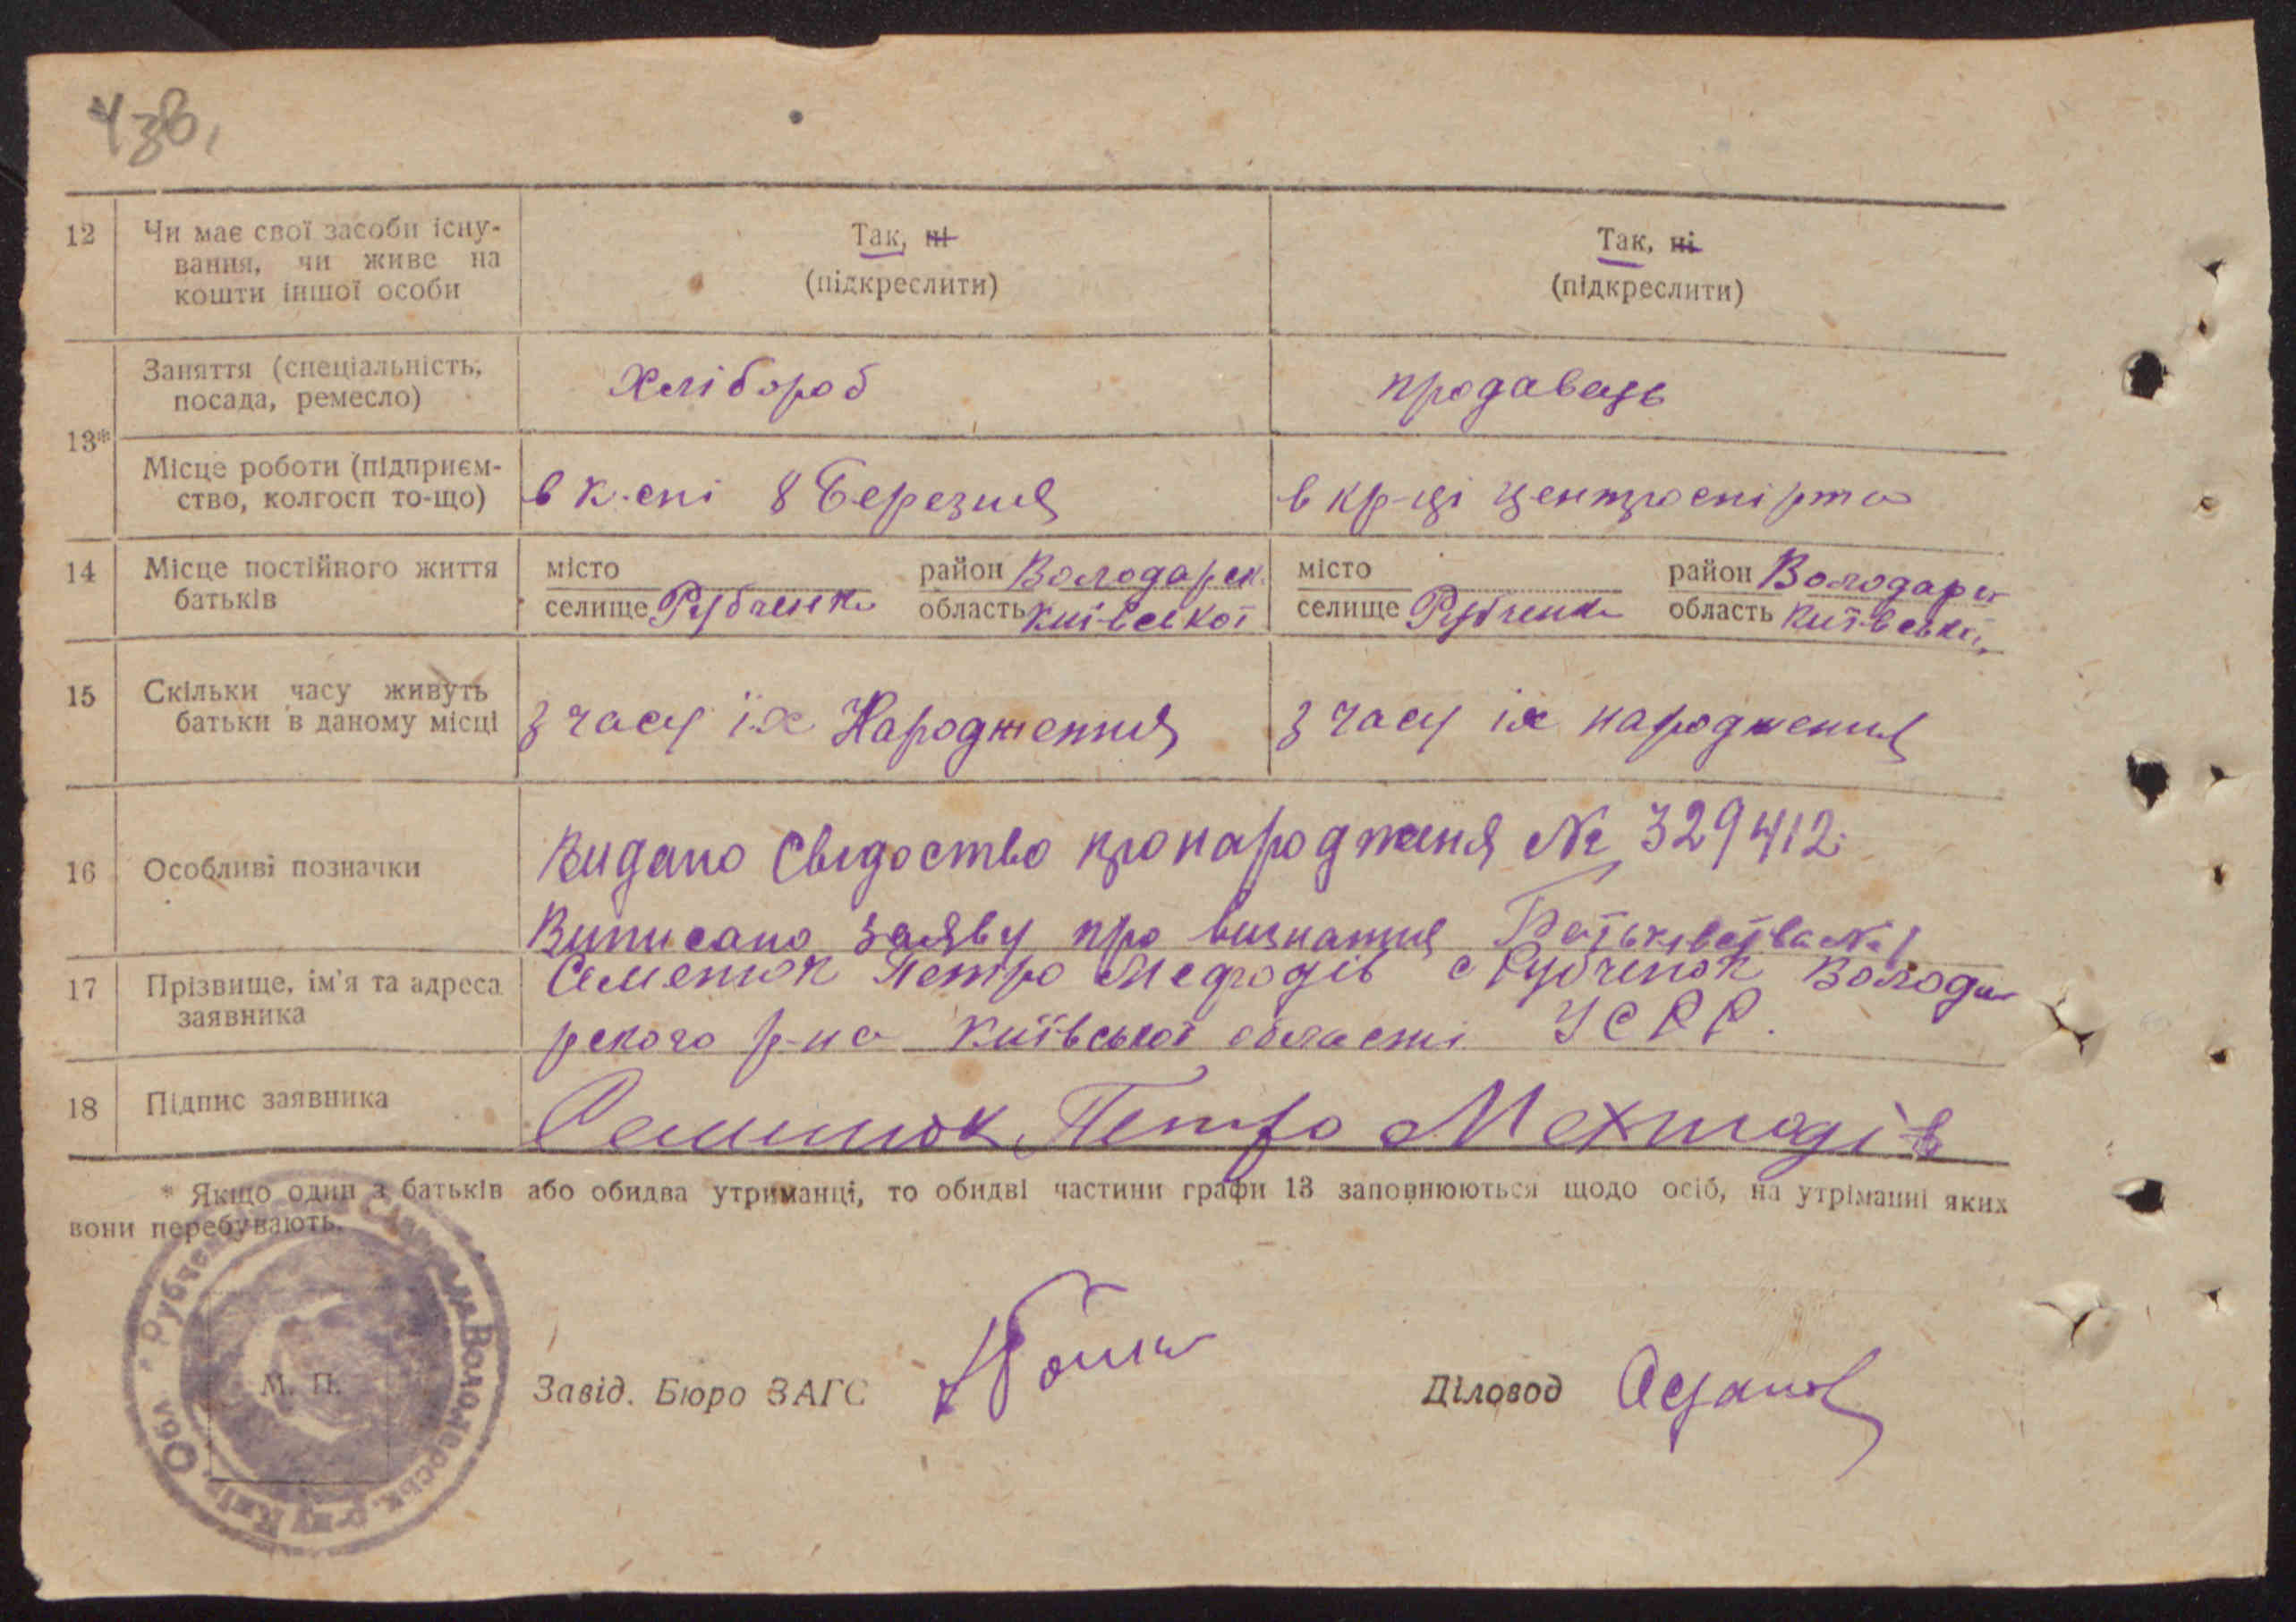 43в,
12 Чи має свої засоби існу-
вання, чи живе на
кошти іншої особи
Так, ні
(підкреслити)
Так, ні
(підкреслити)
13*
Заняття (спеціальність,
посада, ремесло)
Хлібороб
продавець
Місце роботи (підприєм-
ство, колгосп то-що)
в к-спі 8 Березня
в кр-ці центроспірта
14 Місце постійного життя
батьків
місто район Володарск.
селище Рубченки область Київської
місто район Володарск
селище Рубченки область Київської
15 Скільки часу живуть
батьки в даному місці
з часу їх Народження
з часу їх народження
16 Особливі позначки
Видано Свідоство про народженя № 329412
Виписано заяву про визнання Батьківства № 1
17 Прізвище, ім'я та адреса
заявника
Семенюк Петро Мефодів с Рубченок Волода
рского р-на Київської области УСРР.
18 Підпис заявника
Семенюк Петро Мехтодів
* Якщо один з батьків або обидва утриманці, то обидві частини графи 13 заповнюються щодо осіб, на утріманні яких
вони перебувають.
М. П.
Завід. Бюро ЗАГС
Діловод